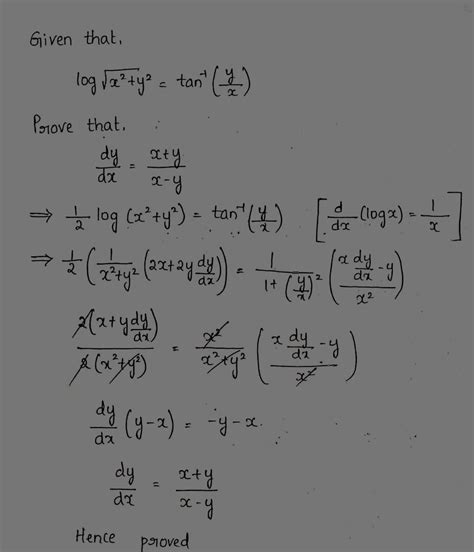 Given that,
log √x²+y² = tan⁻¹ (y/x)
Prove that,
dy/dx = x+y/x-y
⇒ 1/2 log (x²+y²) = tan⁻¹ (y/x) [d/dx (log x) = 1/x]
⇒ 1/2 (1/x²+y² (2x+2y dy/dx)) = 1/1+(y/x)² (x dy/dx - y/x²)
2(x+y dy/dx)/2(x²+y²) = x²/x²+y² (x dy/dx - y/x²)
dy/dx (y-x) = -y-x.
dy/dx = x+y/x-y
Hence proved